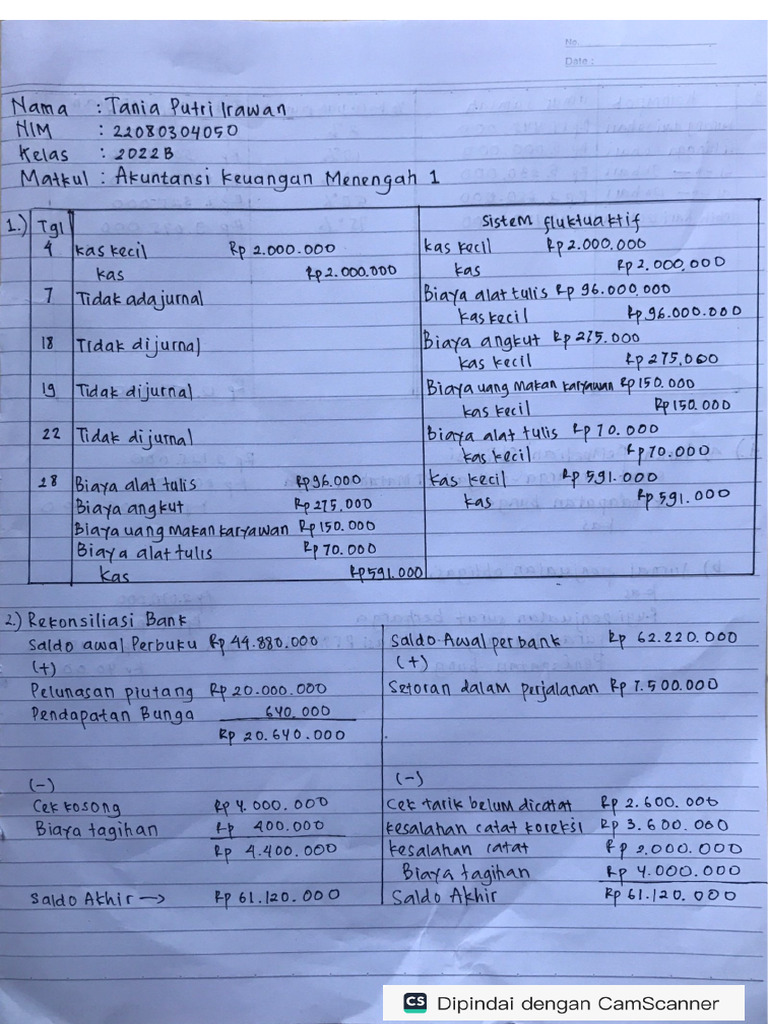 No.
Date :
Nama : Tania Putri Irawan
NIM : 22080304050
Kelas : 2022B
Matkul : Akuntansi Keuangan Menengah 1
1.) Tgl sistem fluktuaktif
4 kas kecil Rp 2.000.000 kas kecil Rp 2.000.000
kas Rp 2.000.000 kas Rp 2.000.000
7 Tidak ada jurnal Biaya alat tulis Rp 96.000.000
kas kecil Rp 96.000.000
18 Tidak dijurnal Biaya angkut Rp 275.000
kas kecil Rp 275.000
19 Tidak dijurnal Biaya uang makan karyawan Rp 150.000
kas kecil Rp 150.000
22 Tidak dijurnal Biaya alat tulis Rp 70.000
kas kecil Rp 70.000
28 Biaya alat tulis Rp 96.000 kas kecil Rp 591.000
Biaya angkut Rp 275.000 kas Rp 591.000
Biaya uang makan karyawan Rp 150.000
Biaya alat tulis Rp 70.000
kas Rp 591.000
2.) Rekonsiliasi Bank
Saldo awal Perbuku Rp 44.880.000 Saldo Awal per bank Rp 62.220.000
(+) (+)
Pelunasan piutang Rp 20.000.000 Setoran dalam perjalanan Rp 7.500.000
Pendapatan Bunga 640.000
Rp 20.640.000
(-) (-)
Cek kosong Rp 4.000.000 Cek tarik belum dicatat Rp 2.600.000
Biaya tagihan Rp 400.000 kesalahan catat koreksi Rp 3.600.000
Rp 4.400.000 kesalahan catat Rp 2.000.000
Biaya tagihan Rp 4.000.000
Saldo Akhir → Rp 61.120.000 Saldo Akhir Rp 61.120.000
CS Dipindai dengan CamScanner